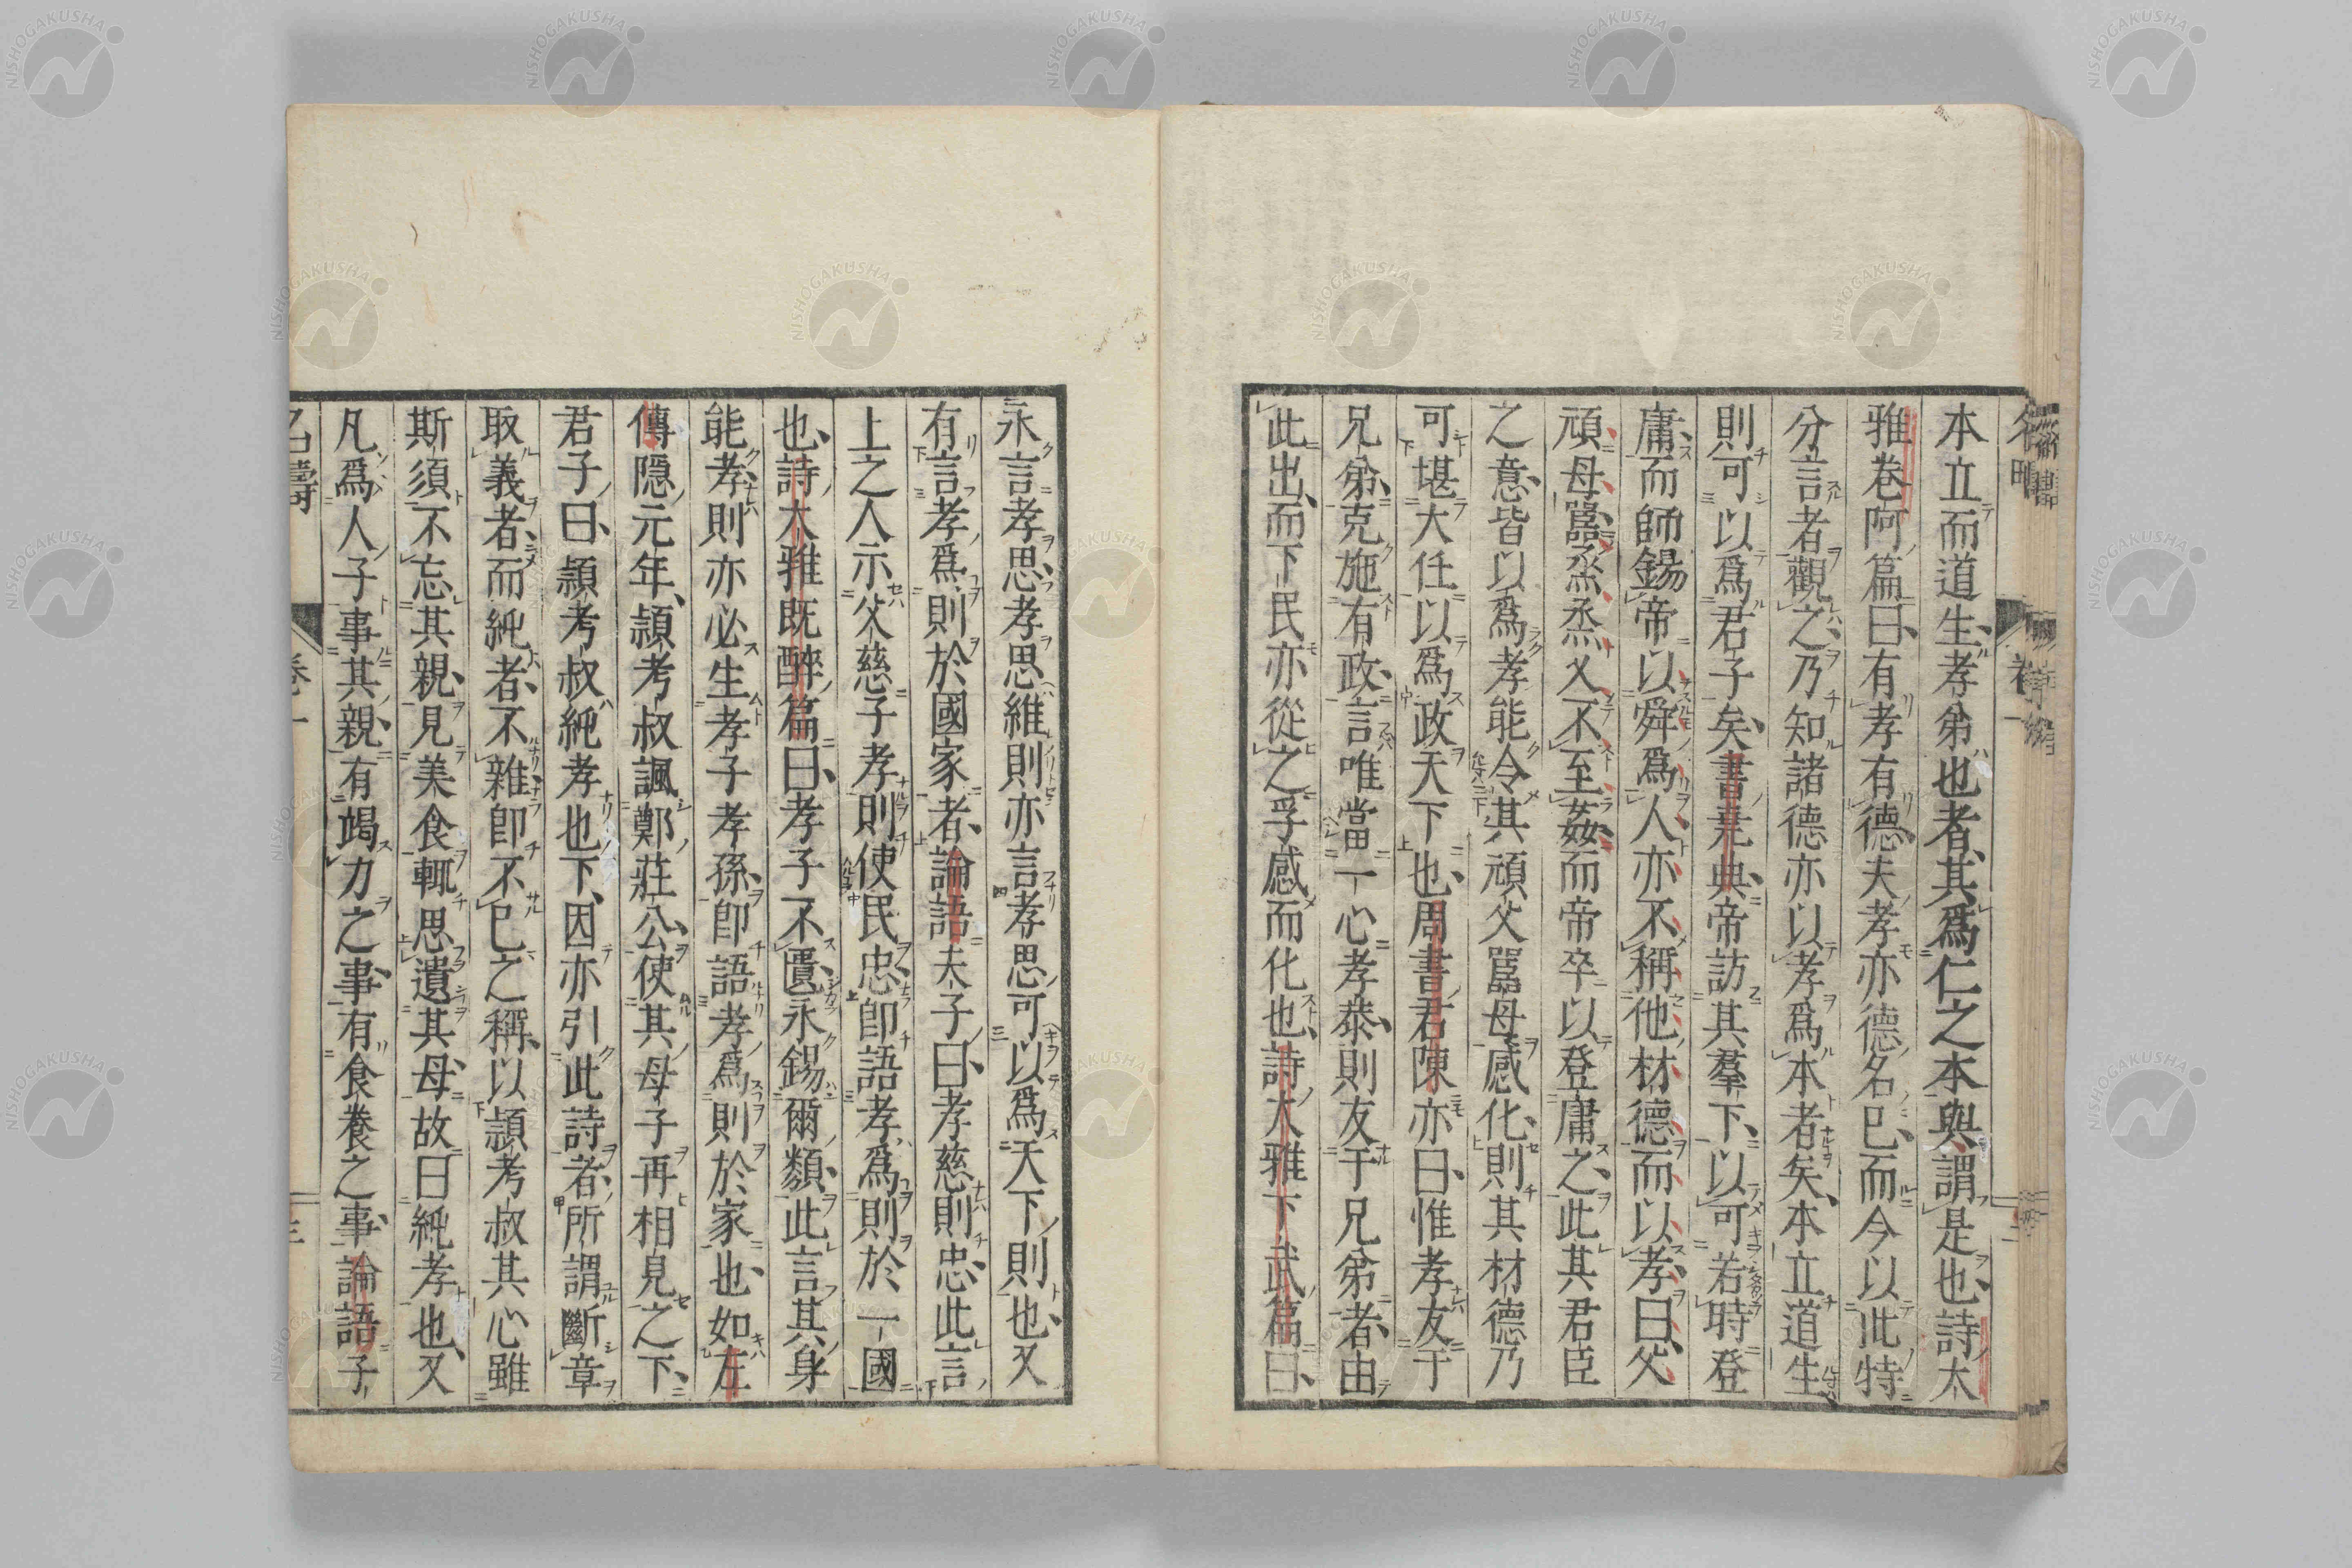 本立而道生、孝弟也者、其爲仁之本與、謂是也、詩大
雅卷阿篇曰、有孝有德、夫孝亦德名已、而今以此特
分言者觀之、乃知諸德亦以孝爲本者矣、本立道生
則可以爲君子矣、書堯典、帝訪其羣下、以可若時登
庸、而師錫帝以舜爲人、亦不稱他材德、而以孝曰、父
頑、母嚚、烝烝乂、不至姦、而帝卒以登庸之、此其君臣
之意、皆以爲孝能令其頑父嚚母感化、則其材德乃
可堪大任以爲政天下也、周書君陳亦曰、惟孝友于
兄弟、克施有政、言唯當一心孝恭、則友于兄弟者、由
此出、而下民亦從之孚感而化也、詩大雅下武篇曰、
永言孝思、孝思維則、亦言孝思可以爲天下則也、又
有言孝爲則於國家者、論語夫子曰、孝慈則忠、此言
上之人示父慈子孝、則使民忠、卽語孝爲則於一國
也、詩大雅既醉篇曰、孝子不匱、永錫爾類、此言其身
能孝、則亦必生孝子孝孫、卽語孝爲則於家也、如左
傳隱元年、頴考叔諷鄭莊公、使其母子再相見之下、
君子曰、頴考叔純孝也下、因亦引此詩者、所謂斷章
取義者、而純者、不雜卽不已之稱、以頴考叔其心雖
斯須不忘其親、見美食輒思遺其母、故曰純孝也、又
凡爲人子事其親、有竭力之事、有食養之事、論語子
名疇
卷一
三
NISHOGAKUSHA